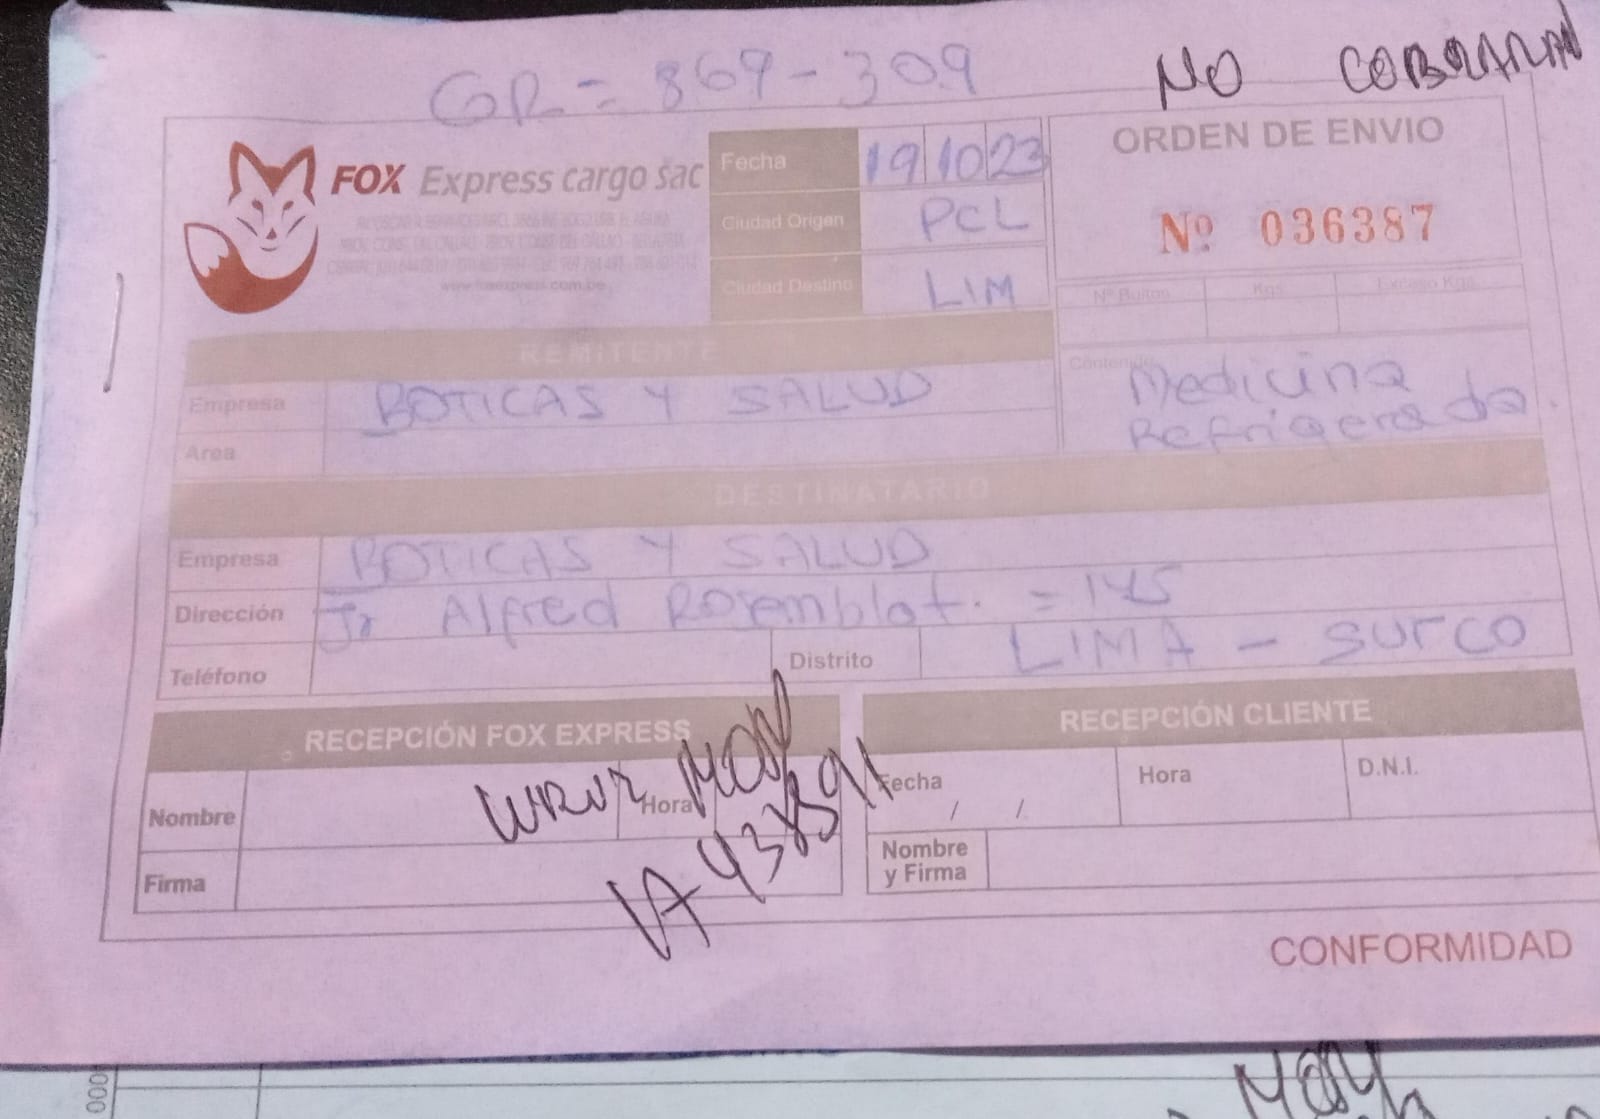 GR = 869 - 309
NO COBRARAN
FOX Express cargo sac
www.foxexpress.com.pe
Fecha 19 10 23
Ciudad Origen PCL
Ciudad Destino LIM
ORDEN DE ENVIO
Nº 036387
Nº Bultos Kgs Exceso Kgs.
Contenido Medicina
Refrigerada.
REMITENTE
Empresa BOTICAS Y SALUD
Area
DESTINATARIO
Empresa BOTICAS Y SALUD
Dirección Jr Alfred Rosemblat. = 145
Teléfono Distrito LIMA - SURCO
RECEPCIÓN FOX EXPRESS
Nombre Hora
Firma
RECEPCIÓN CLIENTE
Fecha / / Hora D.N.I.
Nombre
y Firma
CONFORMIDAD
000